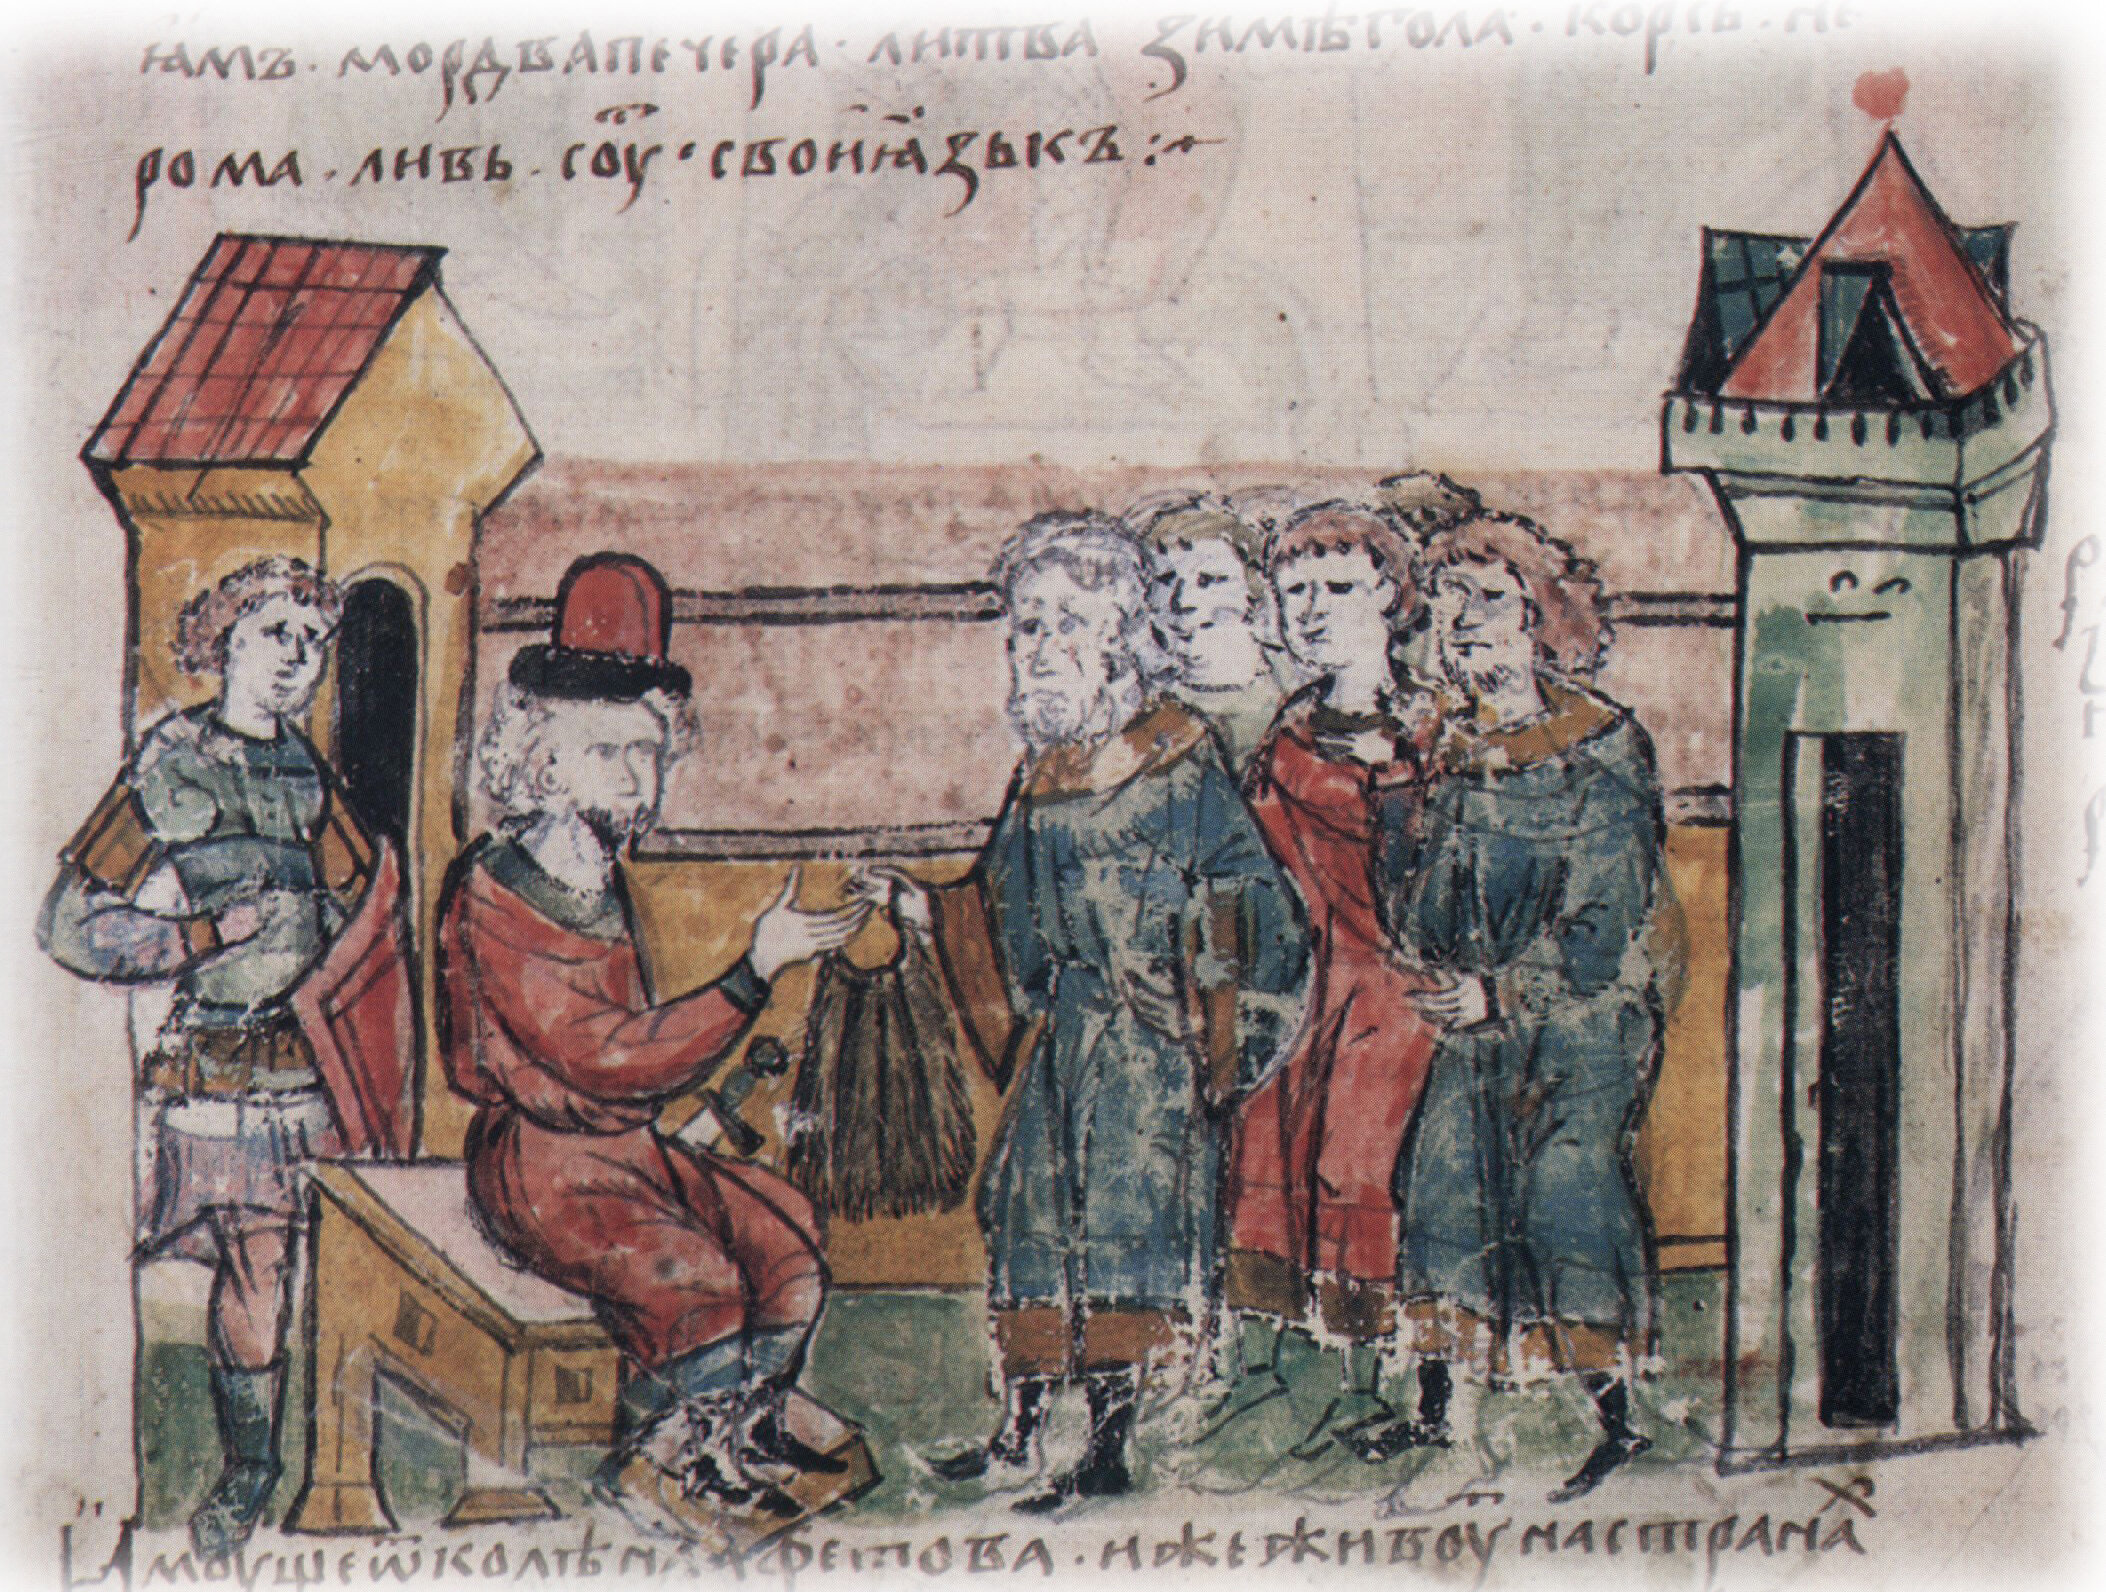 ꙗмъ · мордва печера · литва зимѣгола · корсь · не
рома · либь · соуⷮ · свои ꙗзыкъ :~
Имоуще ѿ колѣна афетова · иже живоуⷮ на странаⷯ